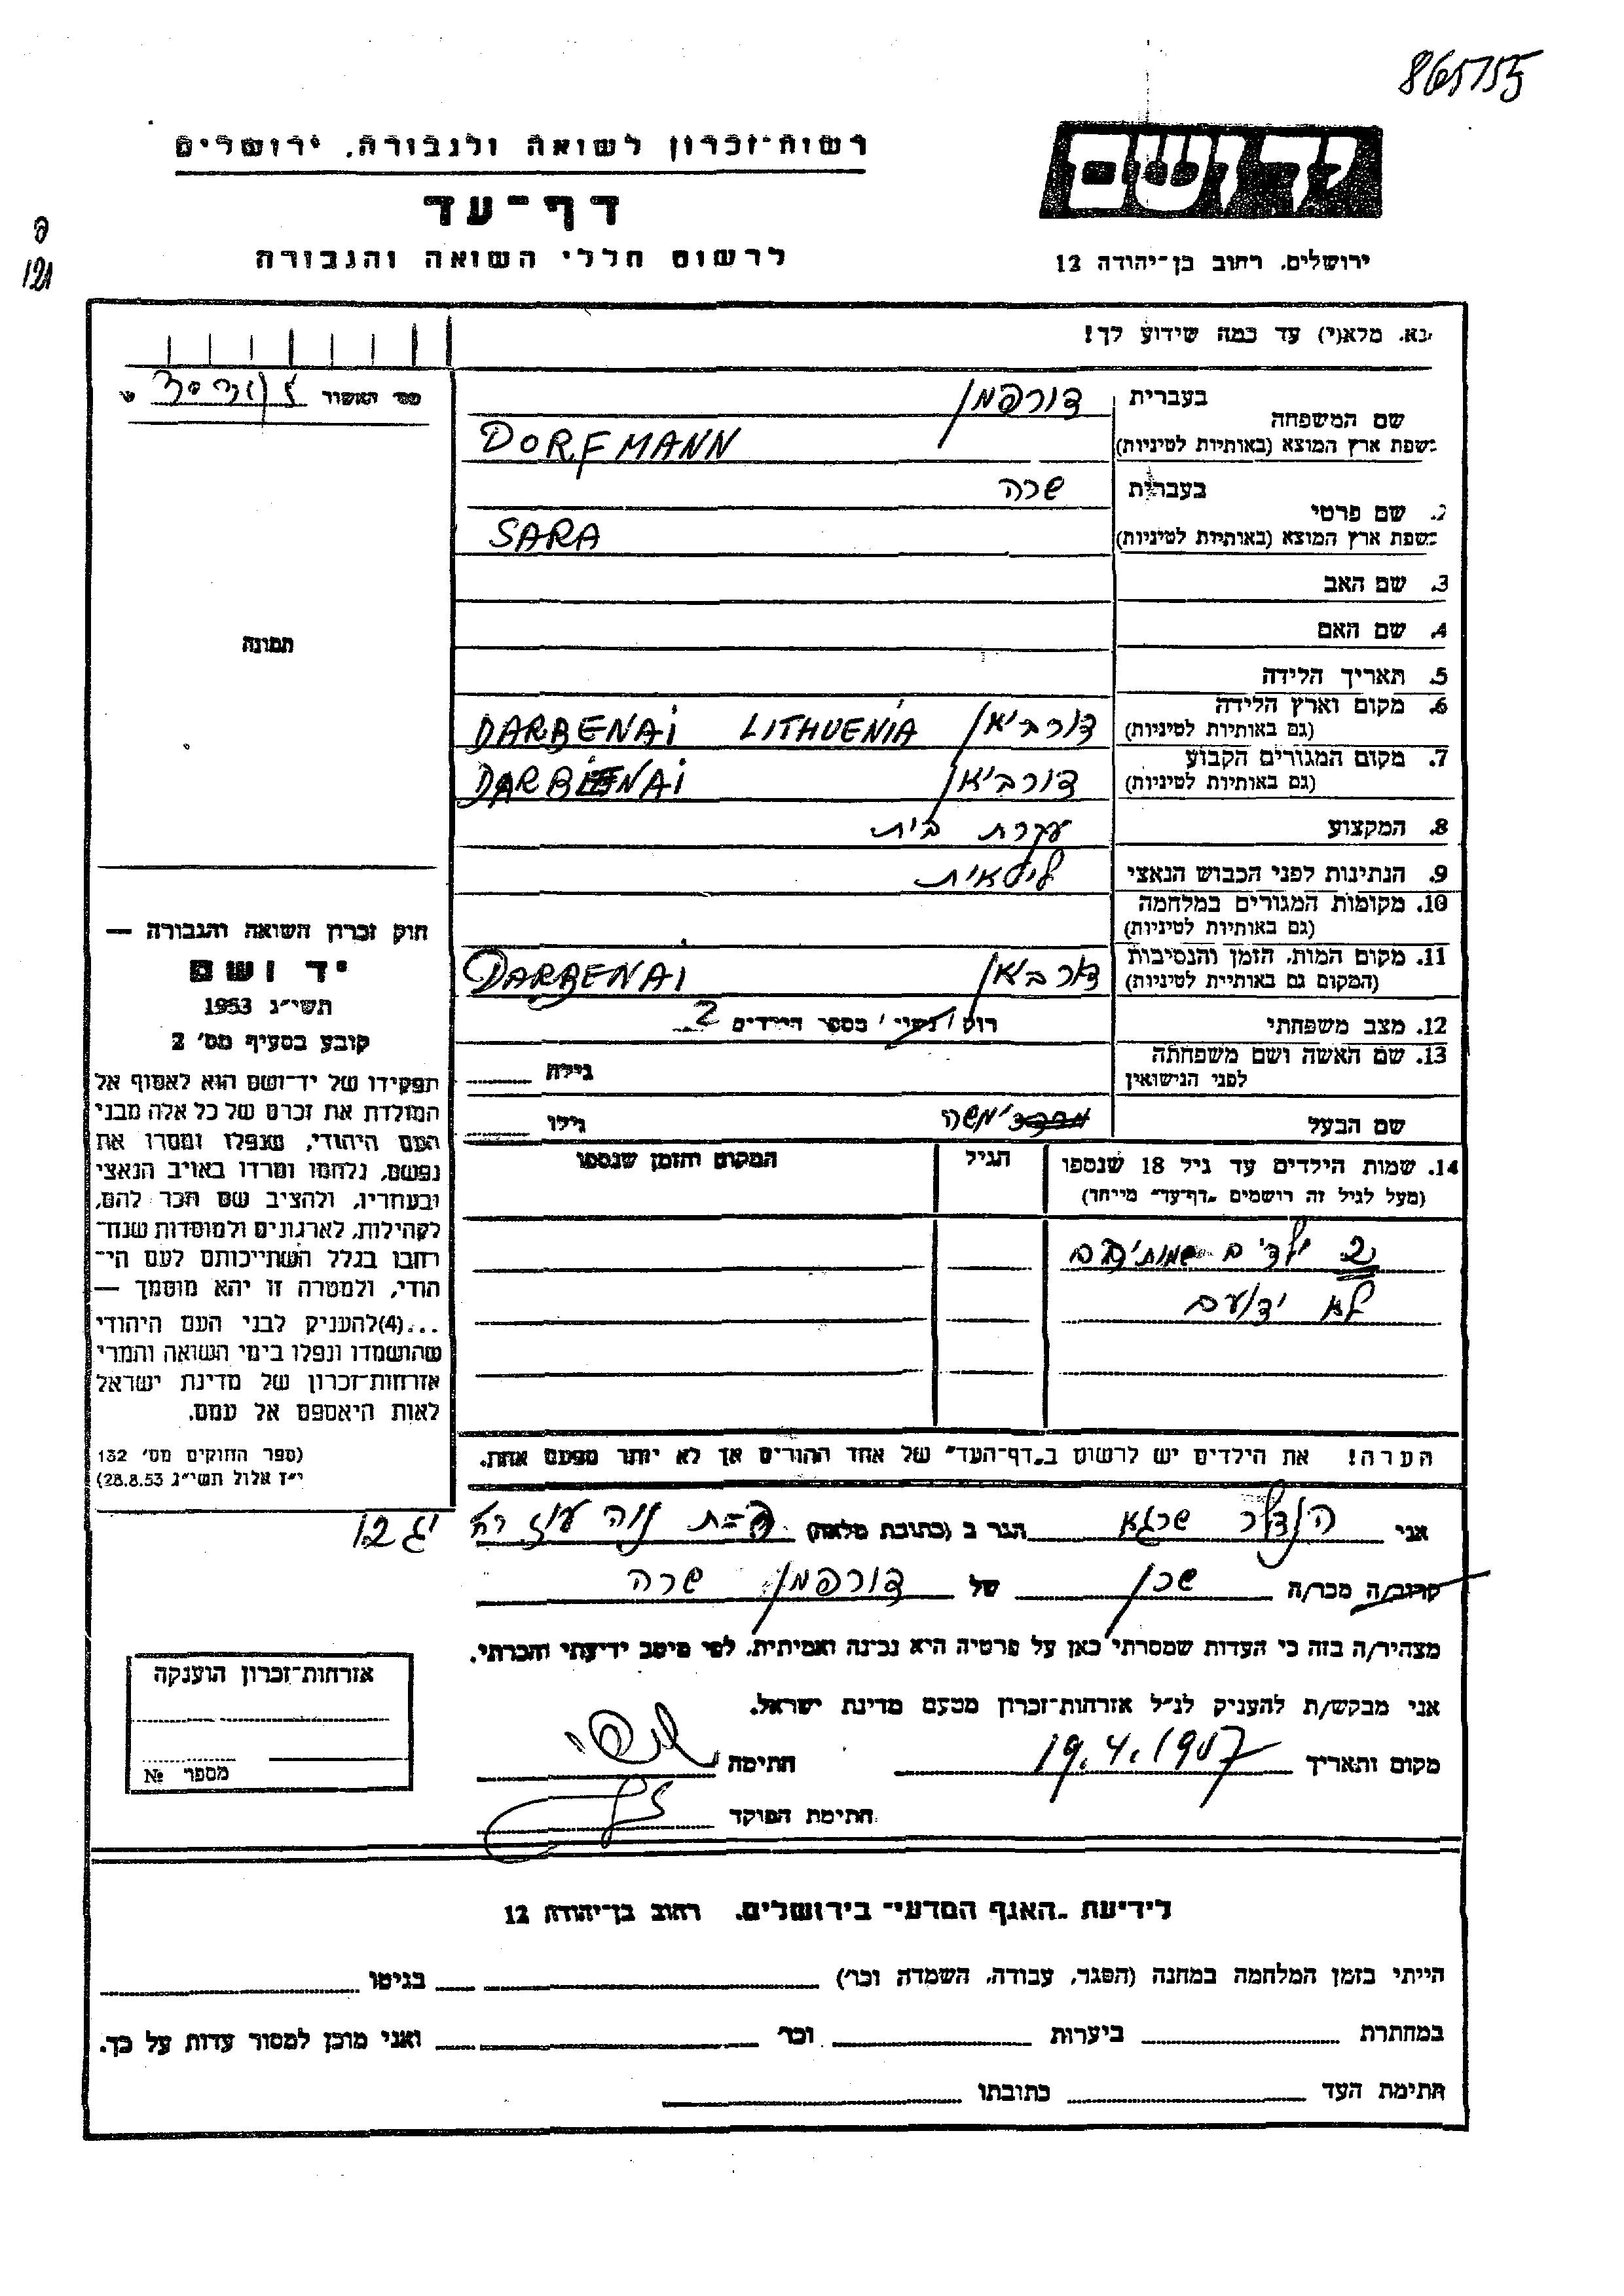 865755
רשות־זכרון לשואה ולגבורה, ירושלים
דף־עד
לרשום חללי השואה והגבורה
יד ושם
ירושלים, רחוב בן־יהודה 12
נא, מלא(י) עד כמה שידוע לך!
מס׳ האשור
שם המשפחה
בעברית דורפמן
בשפת ארץ המוצא (באותיות לטיניות) DORFMANN
2. שם פרטי
בעברית שרה
בשפת ארץ המוצא (באותיות לטיניות) SARA
3. שם האב
4. שם האם
5. תאריך הלידה
6. מקום וארץ הלידה
(גם באותיות לטיניות) דורביאן DARBENAI LITHUENIA
7. מקום המגורים הקבוע
(גם באותיות לטיניות) דורביאן DARBENAI
8. המקצוע עקרת בית
9. הנתינות לפני הכבוש הנאצי ליטאית
10. מקומות המגורים במלחמה
(גם באותיות לטיניות)
11. מקום המות, הזמן והנסיבות
(המקום גם באותיות לטיניות) דורביאן DARBENAI
12. מצב משפחתי רוק / נשוי / מספר הילדים 2
13. שם האשה ושם משפחתה
לפני הנישואין
גילה
שם הבעל משה
גילו
14. שמות הילדים עד גיל 18 שנספו
(מעל לגיל זה רושמים „דף־עד״ מייחד)
הגיל
המקום והזמן שנספו
2 ילדים שמותיהם
לא ידועם
הערה! את הילדים יש לרשום ב„דף־העד״ של אחד ההורים אך לא יותר מפעם אחת.
תמונה
חוק זכרון השואה והגבורה —
יד ושם
תשי״ג 1953
קובע בסעיף מס׳ 2
תפקידו של יד־ושם הוא לאסוף אל
המולדת את זכרם של כל אלה מבני
העם היהודי, שנפלו ומסרו את
נפשם, נלחמו ומרדו באויב הנאצי
ובעוזריו, ולהציב שם וזכר להם,
לקהילות, לארגונים ולמוסדות שנח־
רחבו בגלל השתייכותם לעם הי־
הודי, ולמטרה זו יהא מוסמך —
...(4)להעניק לבני העם היהודי
שהושמדו ונפלו בימי השואה והמרי
אזרחות־זכרון של מדינת ישראל
לאות היאספם אל עמם.
(ספר החוקים מס׳ 132
י״ז אלול תשי״ג 28.8.53)
אני הנדלר שרגא הגר ב (כתובת מלאה) פ־ת נוה עוז רח יג 12
קרוב/ה מכר/ה שכן של דורפמן שרה
מצהיר/ה בזה כי העדות שמסרתי כאן על פרטיה היא נכונה ואמיתית, לפי מיטב ידיעתי והכרתי.
אני מבקש/ת להעניק לנ״ל אזרחות־זכרון מטעם מדינת ישראל.
מקום ותאריך 19.4.1987 חתימה
חתימת הפוקד
אזרחות־זכרון הוענקה
מספר №
לידיעת „האגף המדעי״ בירושלים, רחוב בן־יהודה 12
הייתי בזמן המלחמה במחנה (הסגר, עבודה, השמדה וכו׳) בגיטו
במחתרת ביערות וכו׳ ואני מוכן למסור עדות על כך.
חתימת העד כתובתו